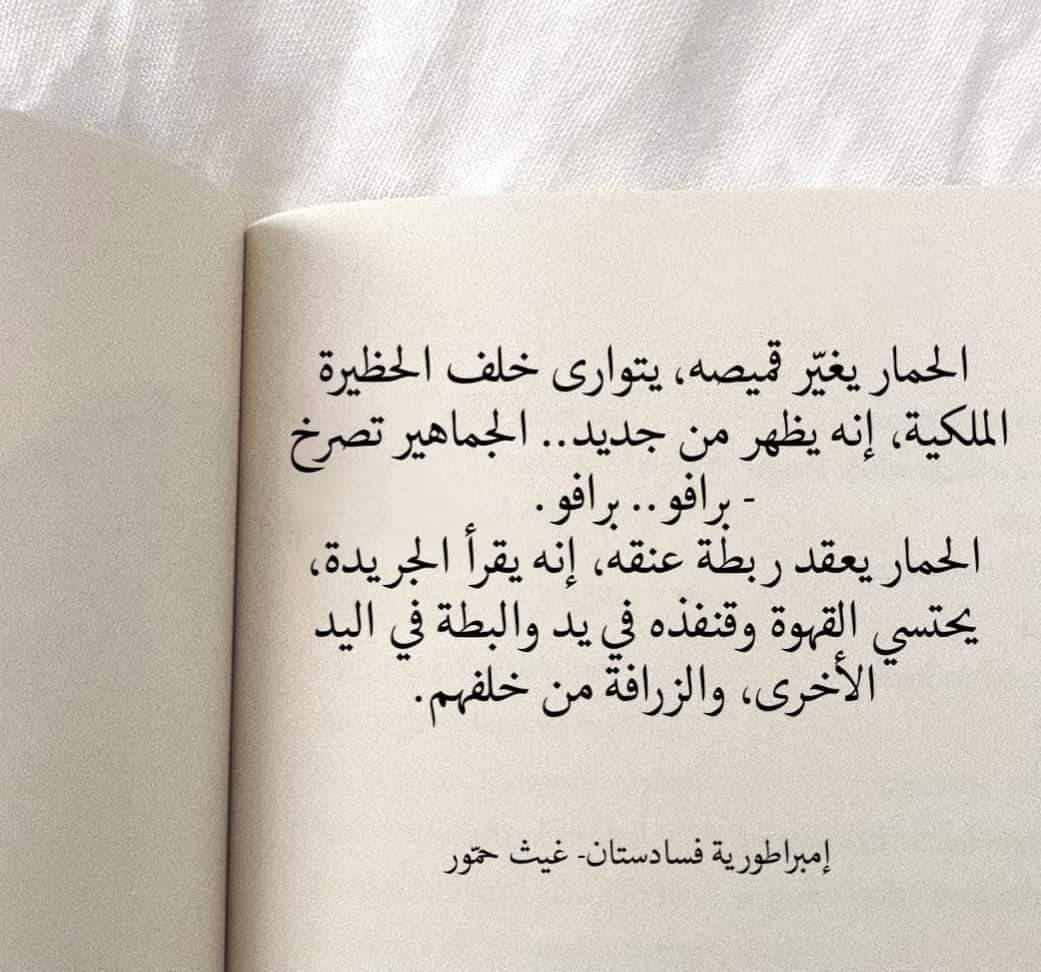 الحمار يغيّر قميصه، يتوارى خلف الحظيرة
الملكية، إنه يظهر من جديد.. الجماهير تصرخ
- برافو.. برافو.
الحمار يعقد ربطة عنقه، إنه يقرأ الجريدة،
يحتسي القهوة وقنفذه في يد والبطة في اليد
الأخرى، والزرافة من خلفهم.
إمبراطورية فسادستان- غيث حمّور